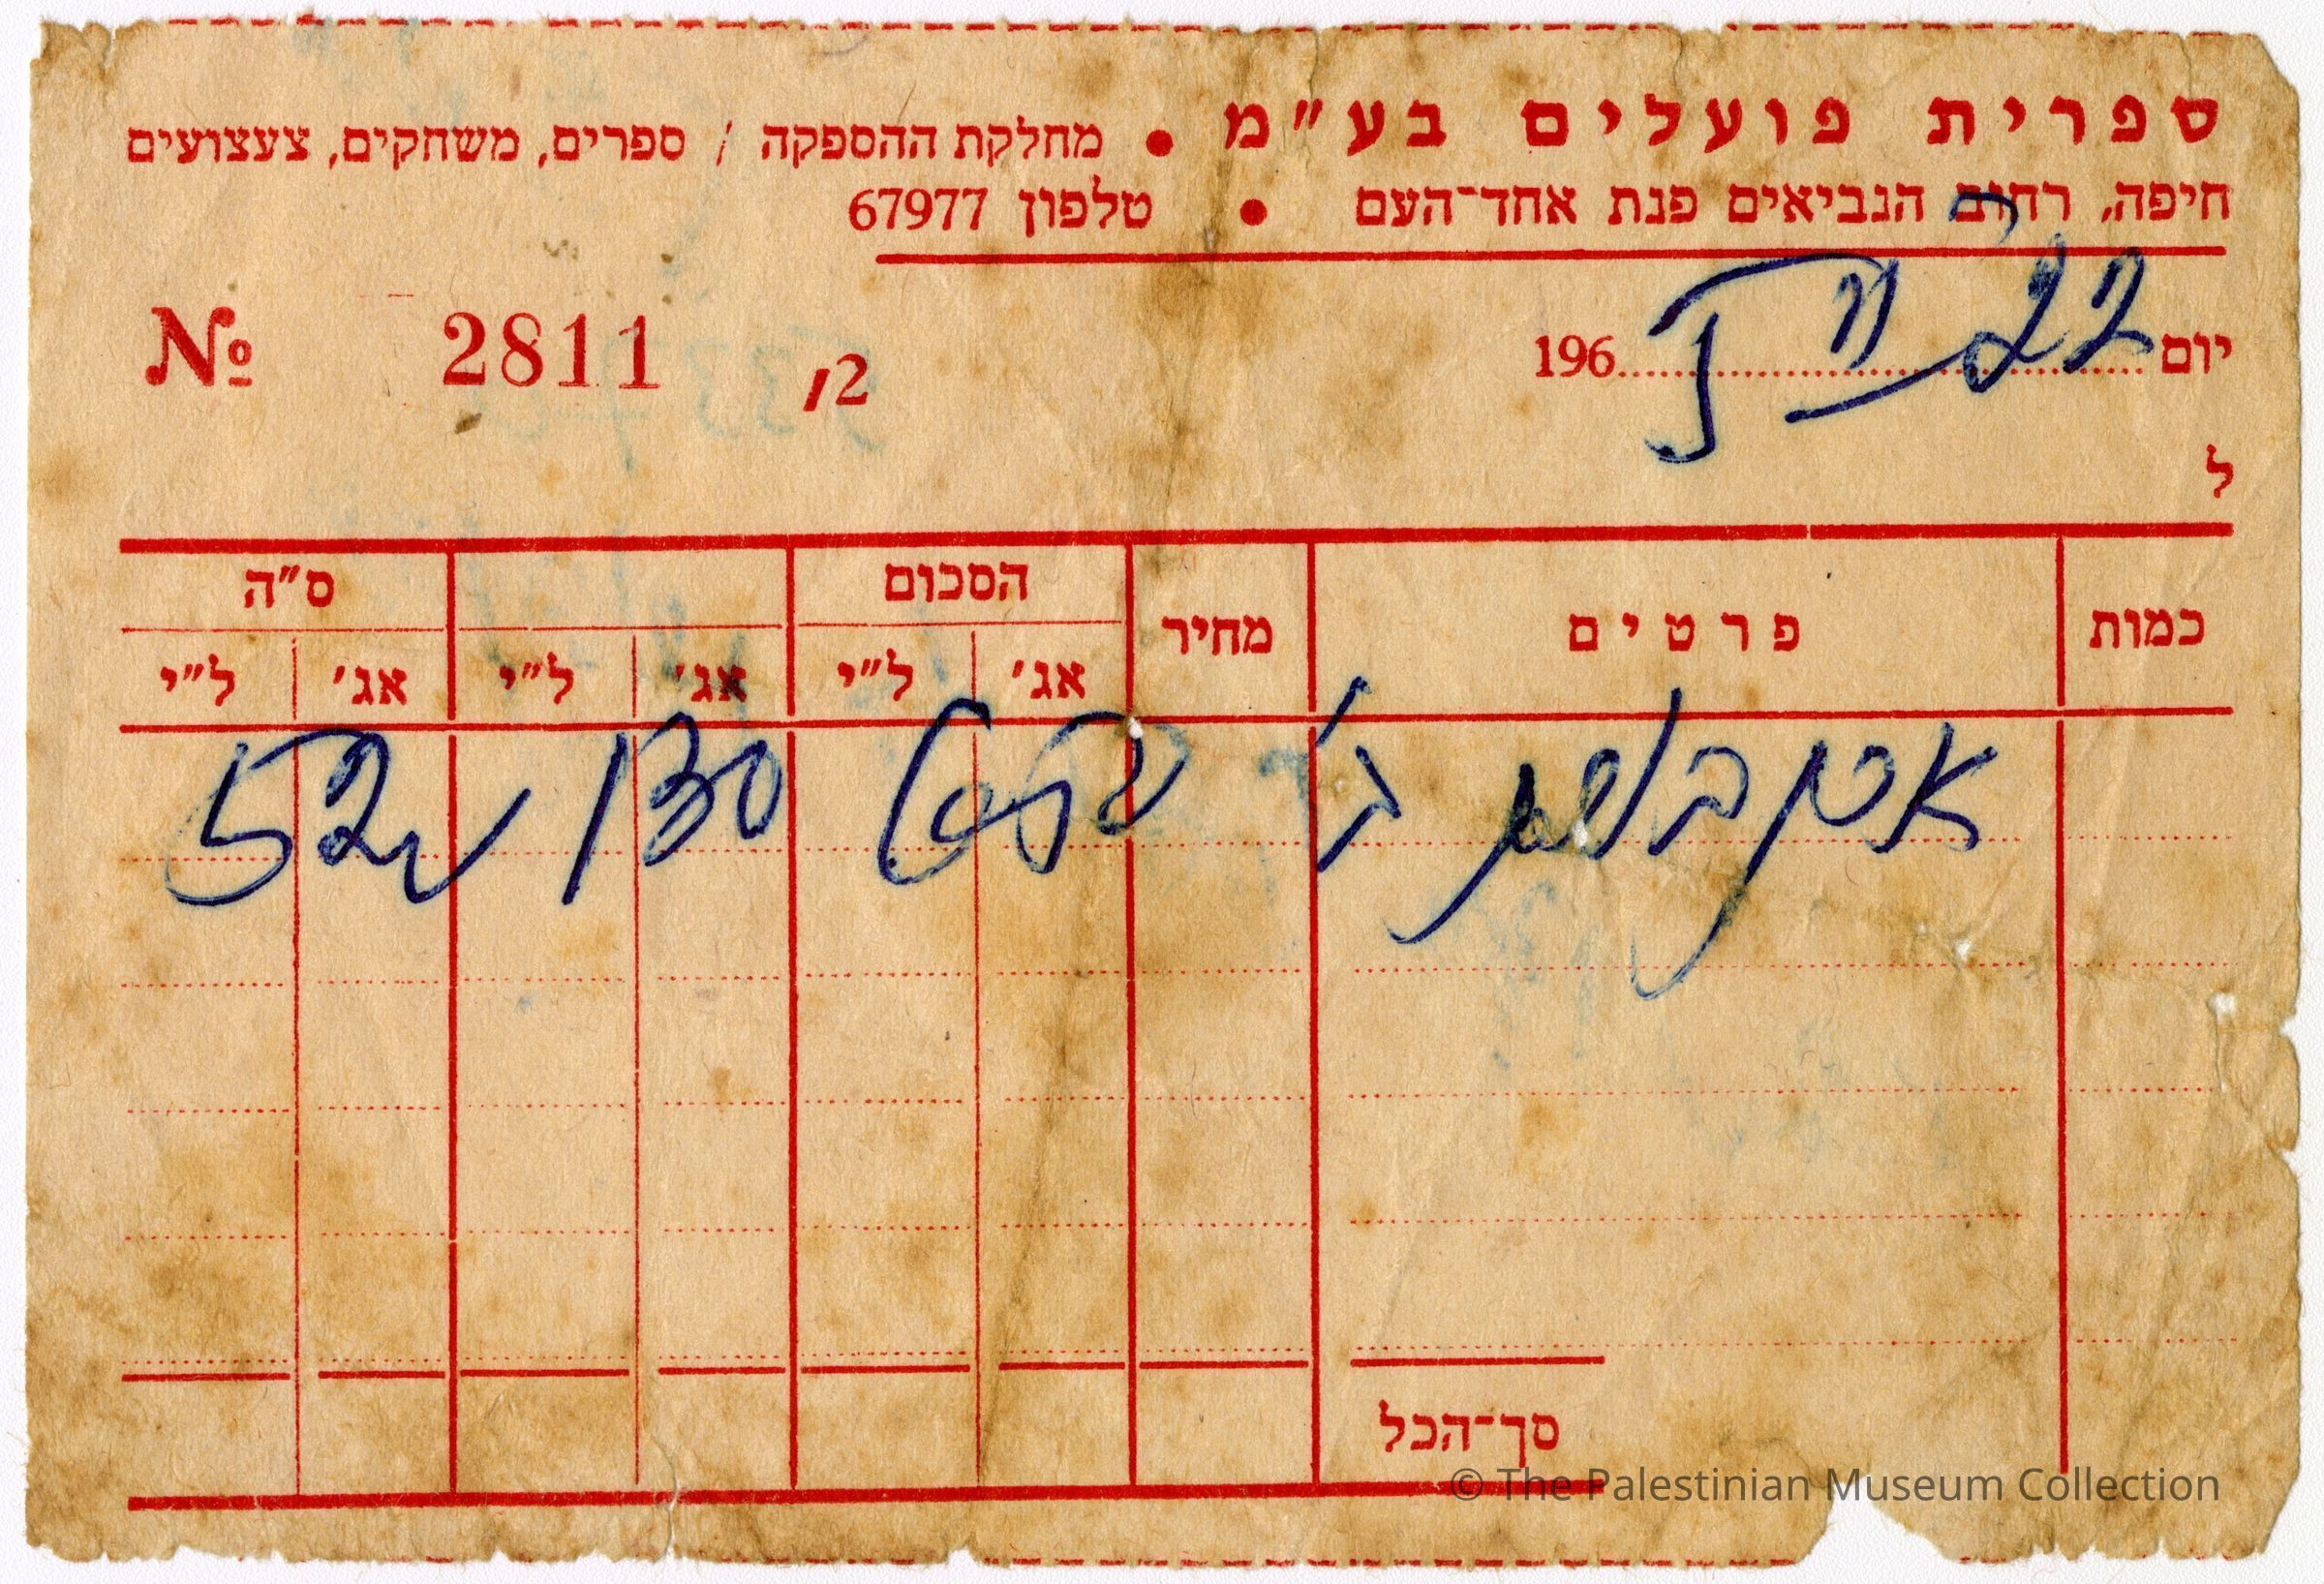 ספרית פועלים בע"מ • מחלקת ההספקה / ספרים, משחקים, צעצועים
חיפה, רחוב הנביאים פנת אחד-העם • טלפון 67977
יום 22 196
№ 2811 /2
ל
כמות פרטים מחיר הסכום ס"ה
אג' ל"י אג' ל"י אג' ל"י
52
סך-הכל
© The Palestinian Museum Collection